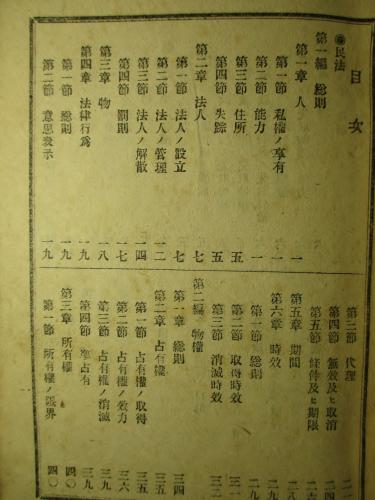 目次
◉民法
第一編 総則
第一章 人 一
第一節 私權ノ享有 一
第二節 能力 一
第三節 住所 五
第四節 失踪 五
第二章 法人 七
第一節 法人ノ設立 七
第二節 法人ノ管理 一二
第三節 法人ノ解散 一四
第四節 罰則 一七
第三章 物 一八
第四章 法律行爲 一九
第一節 総則 一九
第二節 意思表示 一九
第三節 代理
第四節 無效及ヒ取消
第五節 條件及ヒ期限
第五章 期間
第六章 時效
第一節 総則
第二節 取得時效
第三節 消滅時效
第二編 物權
第一章 総則 三四
第二章 占有權 三五
第一節 占有權ノ取得 三五
第二節 占有權ノ效力 三六
第三節 占有權ノ消滅 三九
第四節 準占有 三九
第三章 所有權 四〇
第一節 所有權ノ限界 四〇